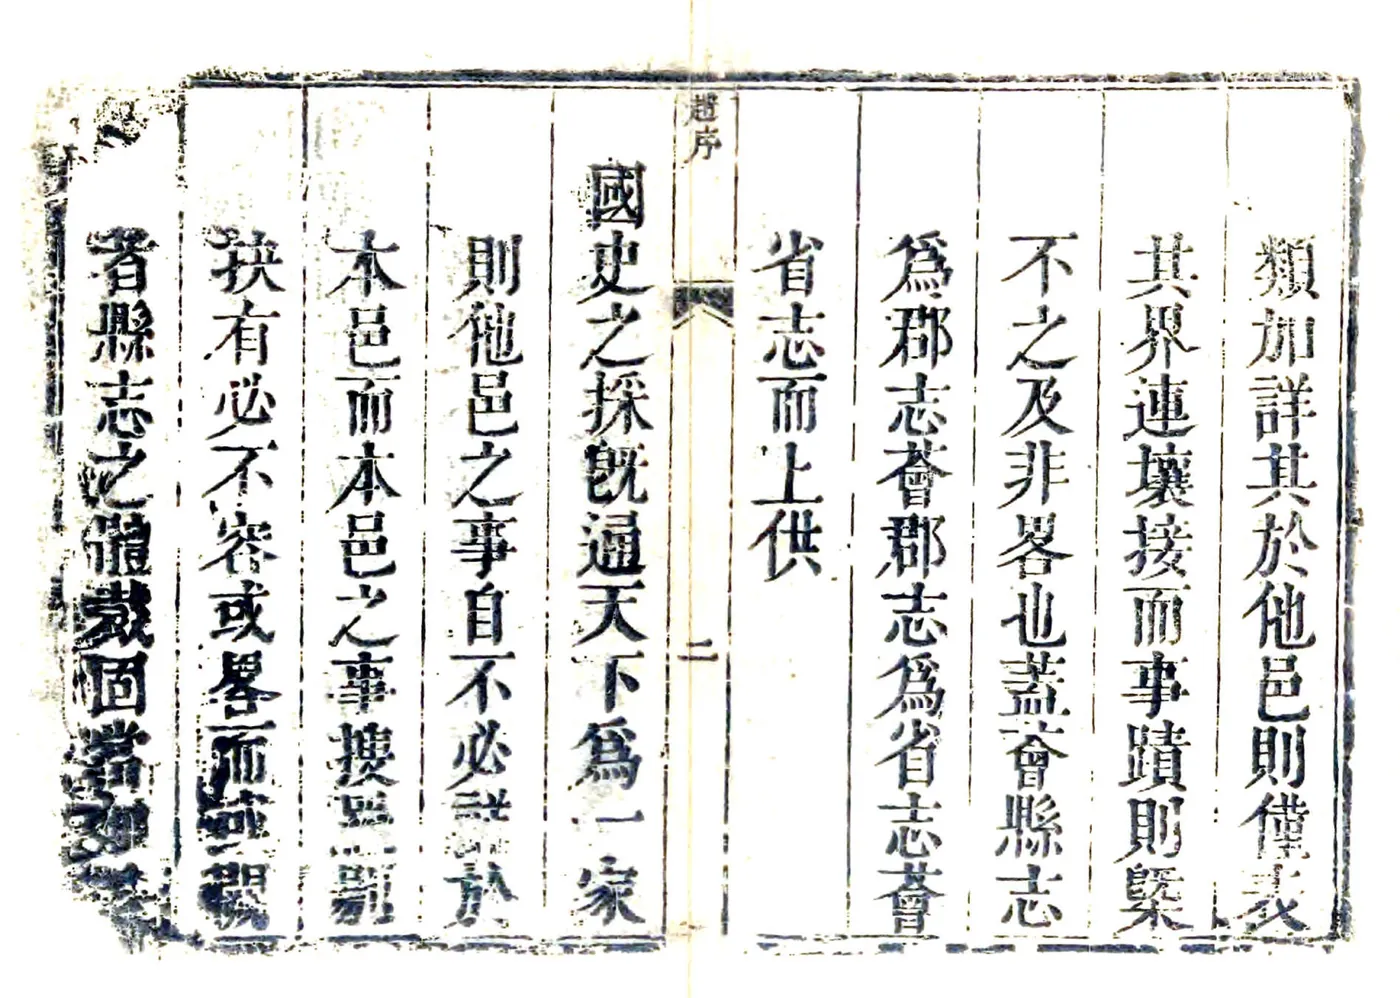 類加詳其於他邑則僅表
其界連壤接而事蹟則槩
不之及非畧也蓋薈縣志
爲郡志薈郡志爲省志薈
省志而上供
趙序
二
國史之採旣通天下爲一家
則他邑之事自不必詳於
本邑而本邑之事摉
抉有必不容或畧而或闕
者縣志之體裁固當